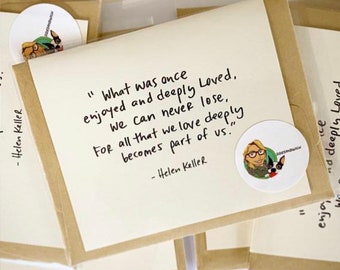 " What was once
enjoyed and deeply Loved,
we can never lose,
For all that we love deeply
becomes part of us."
- Helen Keller
- Helen Keller
enjoyed